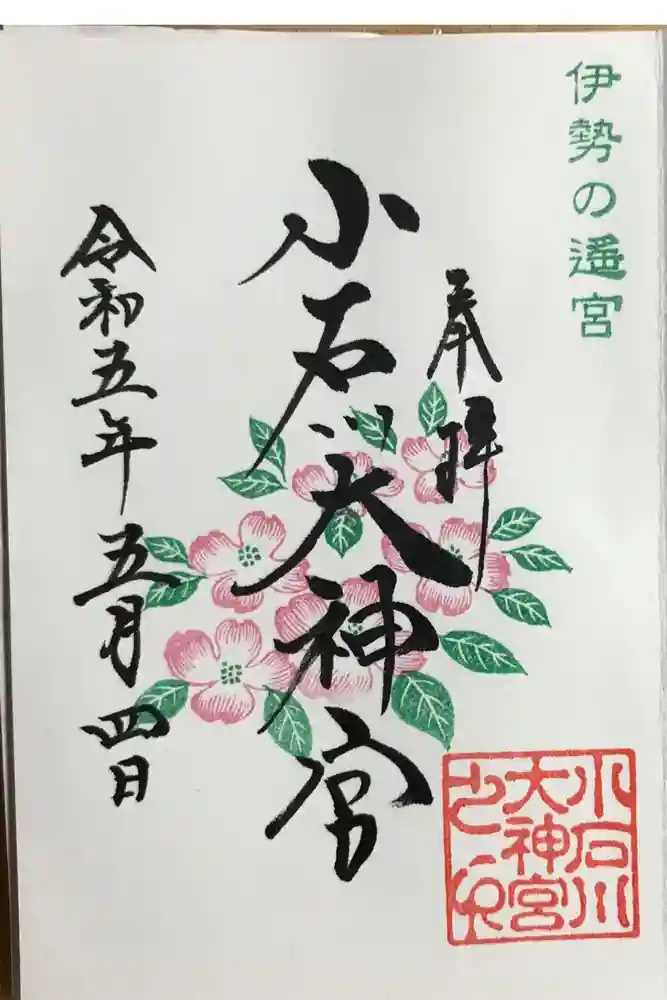 伊勢の遥宮
奉拝
小石川大神宮
令和五年五月四日
小石川
大神宮
之印